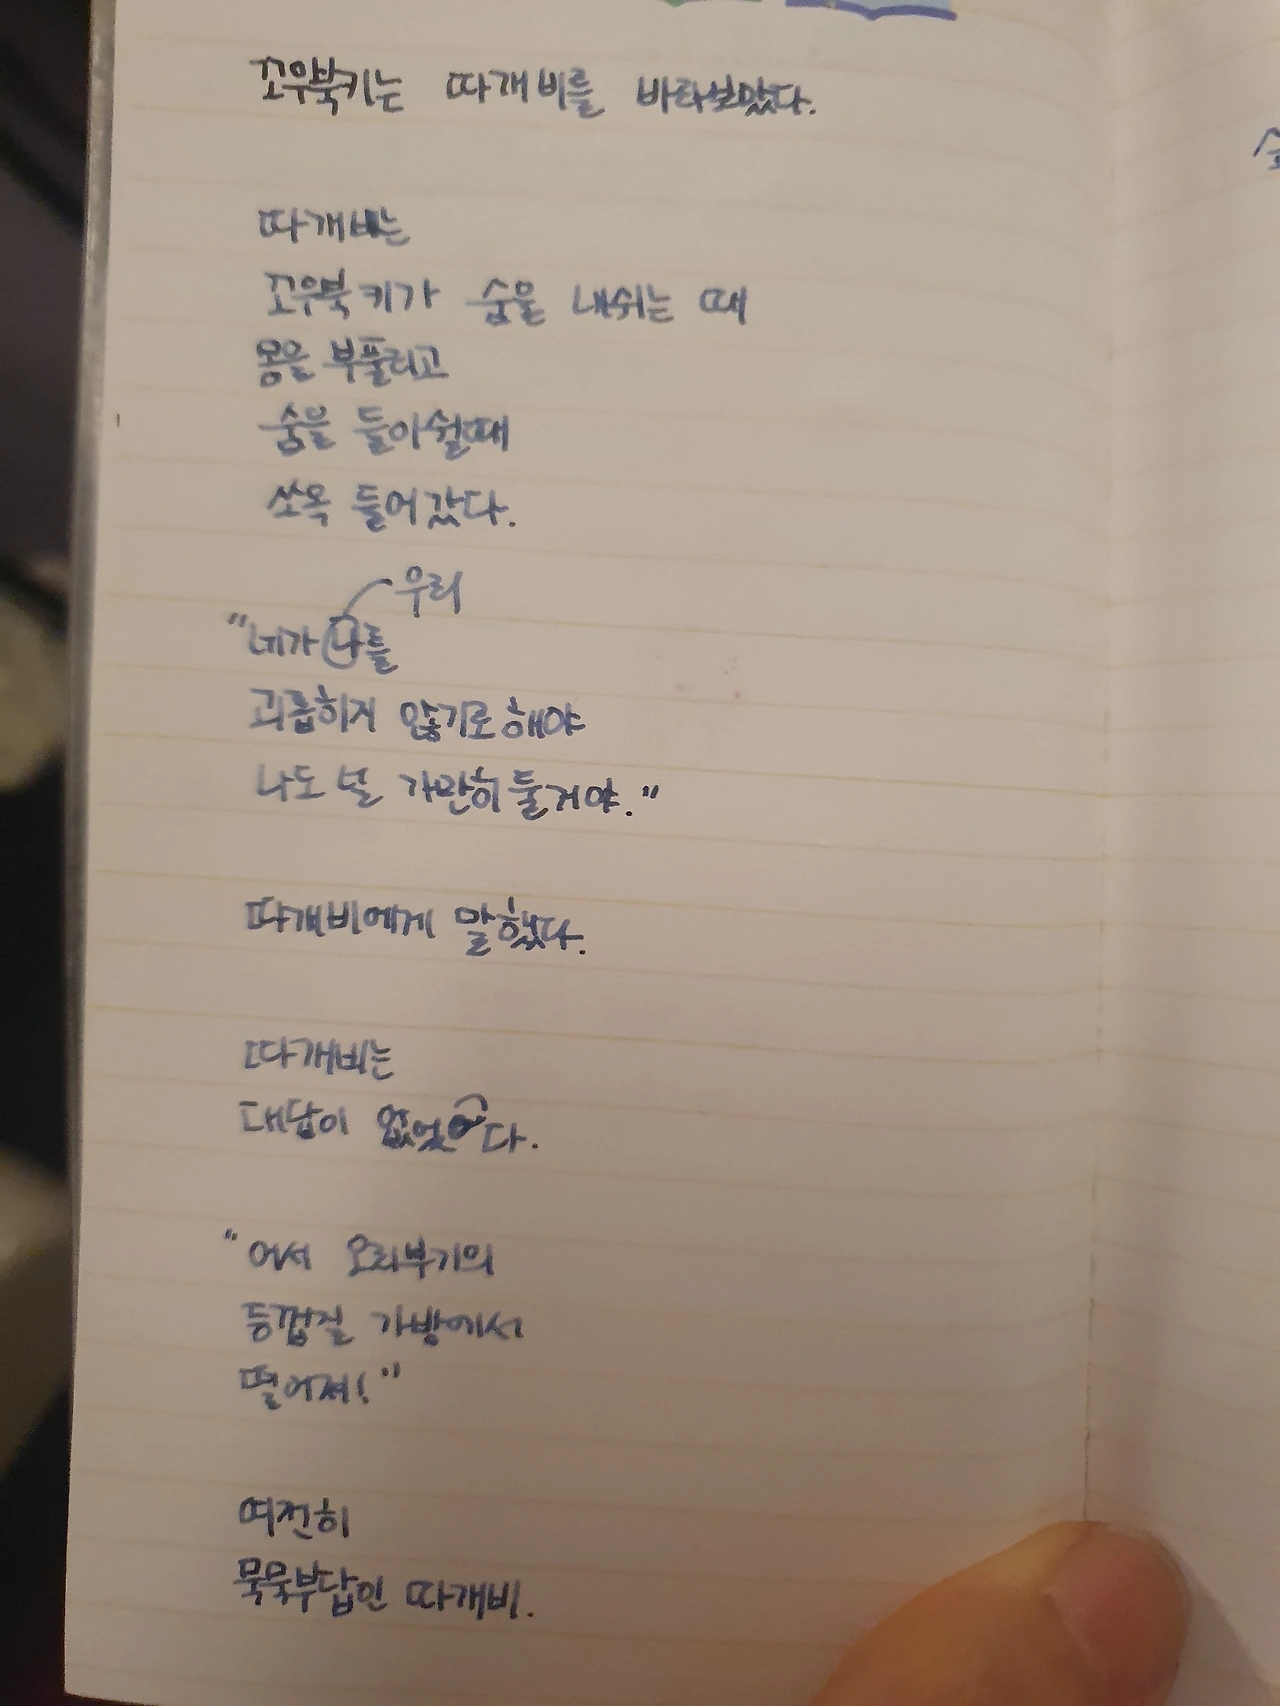 꼬우북키는 따개비를 바라보았다.
따개비는
꼬우북키가 숨을 내쉬는 때
몸을 부풀리고
숨을 들이쉴때
쏘옥 들어갔다.
우리
"네가 나를
괴롭히지 않기로 해야
나도 널 가만히 둘거야."
따개비에게 말했다.
따개비는
대답이 없었다.
"어서 오리부기의
등껍질 가방에서
떨어져!"
여전히
묵묵부답인 따개비.